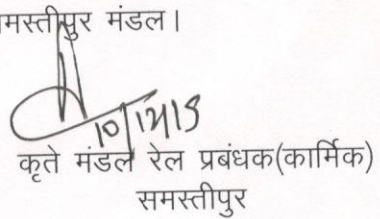 मस्तीपुर मंडल।
10/12/15
कृते मंडल रेल प्रबंधक(कार्मिक)
समस्तीपुर